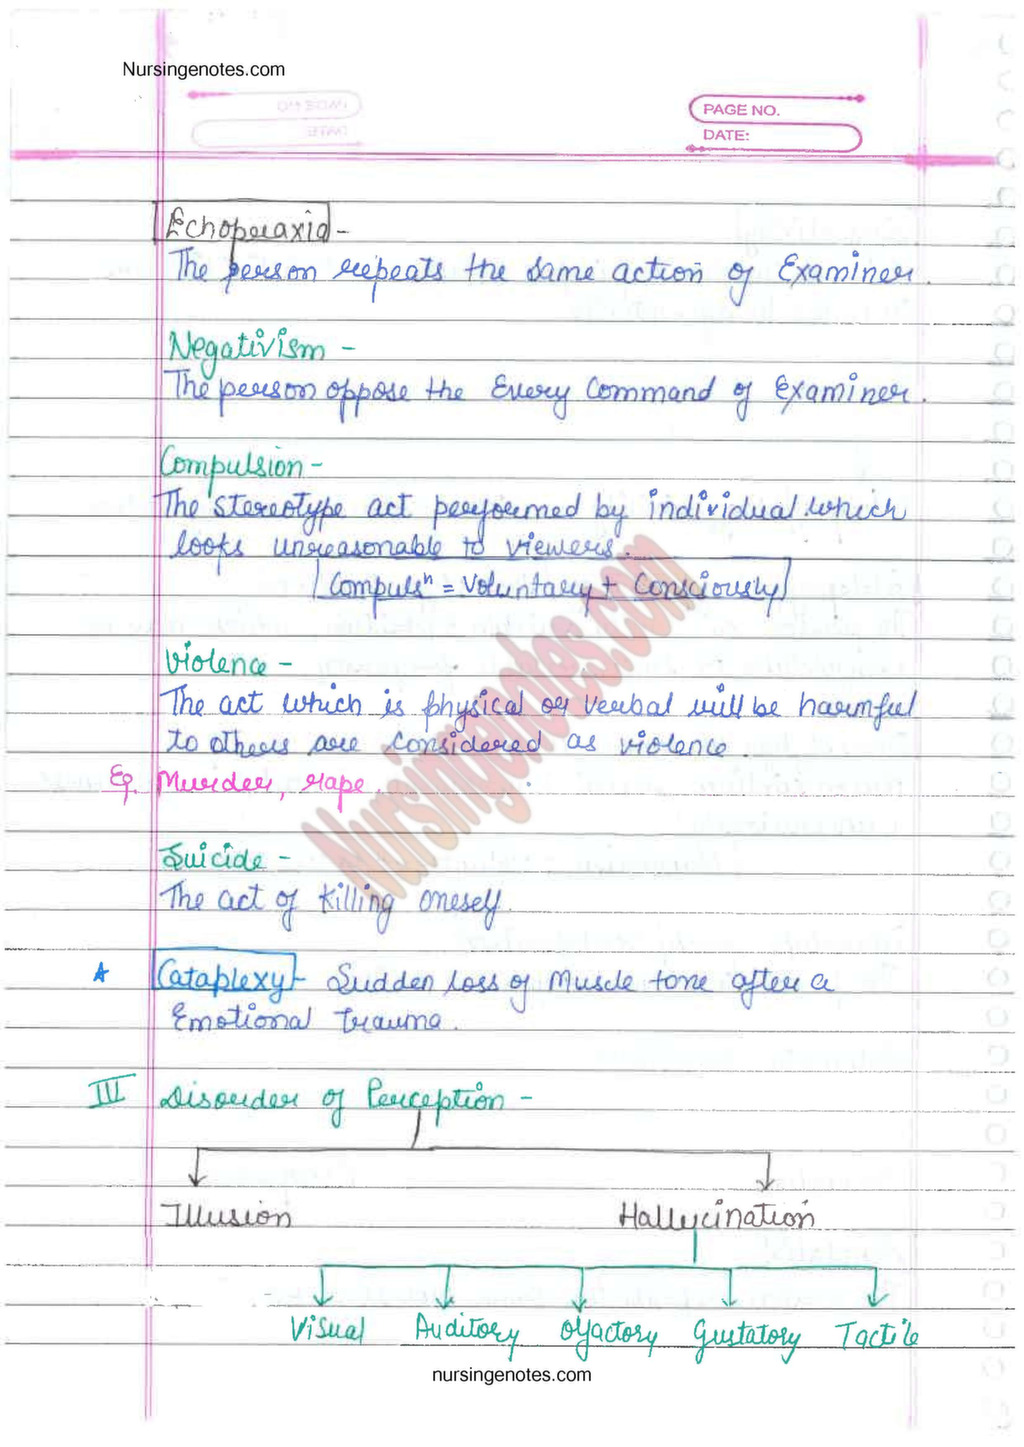 Nursingenotes.com
PAGE NO.
DATE:
Echopraxia -
The person repeats the same action of Examiner.
Negativism -
The person oppose the Every Command of Examiner.
Compulsion -
The stereotype act performed by individual which
looks unreasonable to viewers.
Compulsⁿ = Voluntary + Consciously
Violence -
The act which is physical or verbal will be harmful
to others are considered as violence.
Eg. Murder, rape.
Suicide -
The act of killing oneself.
Cataplexy - Sudden loss of Muscle tone after a
Emotional Trauma.
III Disorder of Perception -
Illusion Hallucination
Visual Auditory Olfactory Gustatory Tactile
Nursingenotes.com
nursingenotes.com